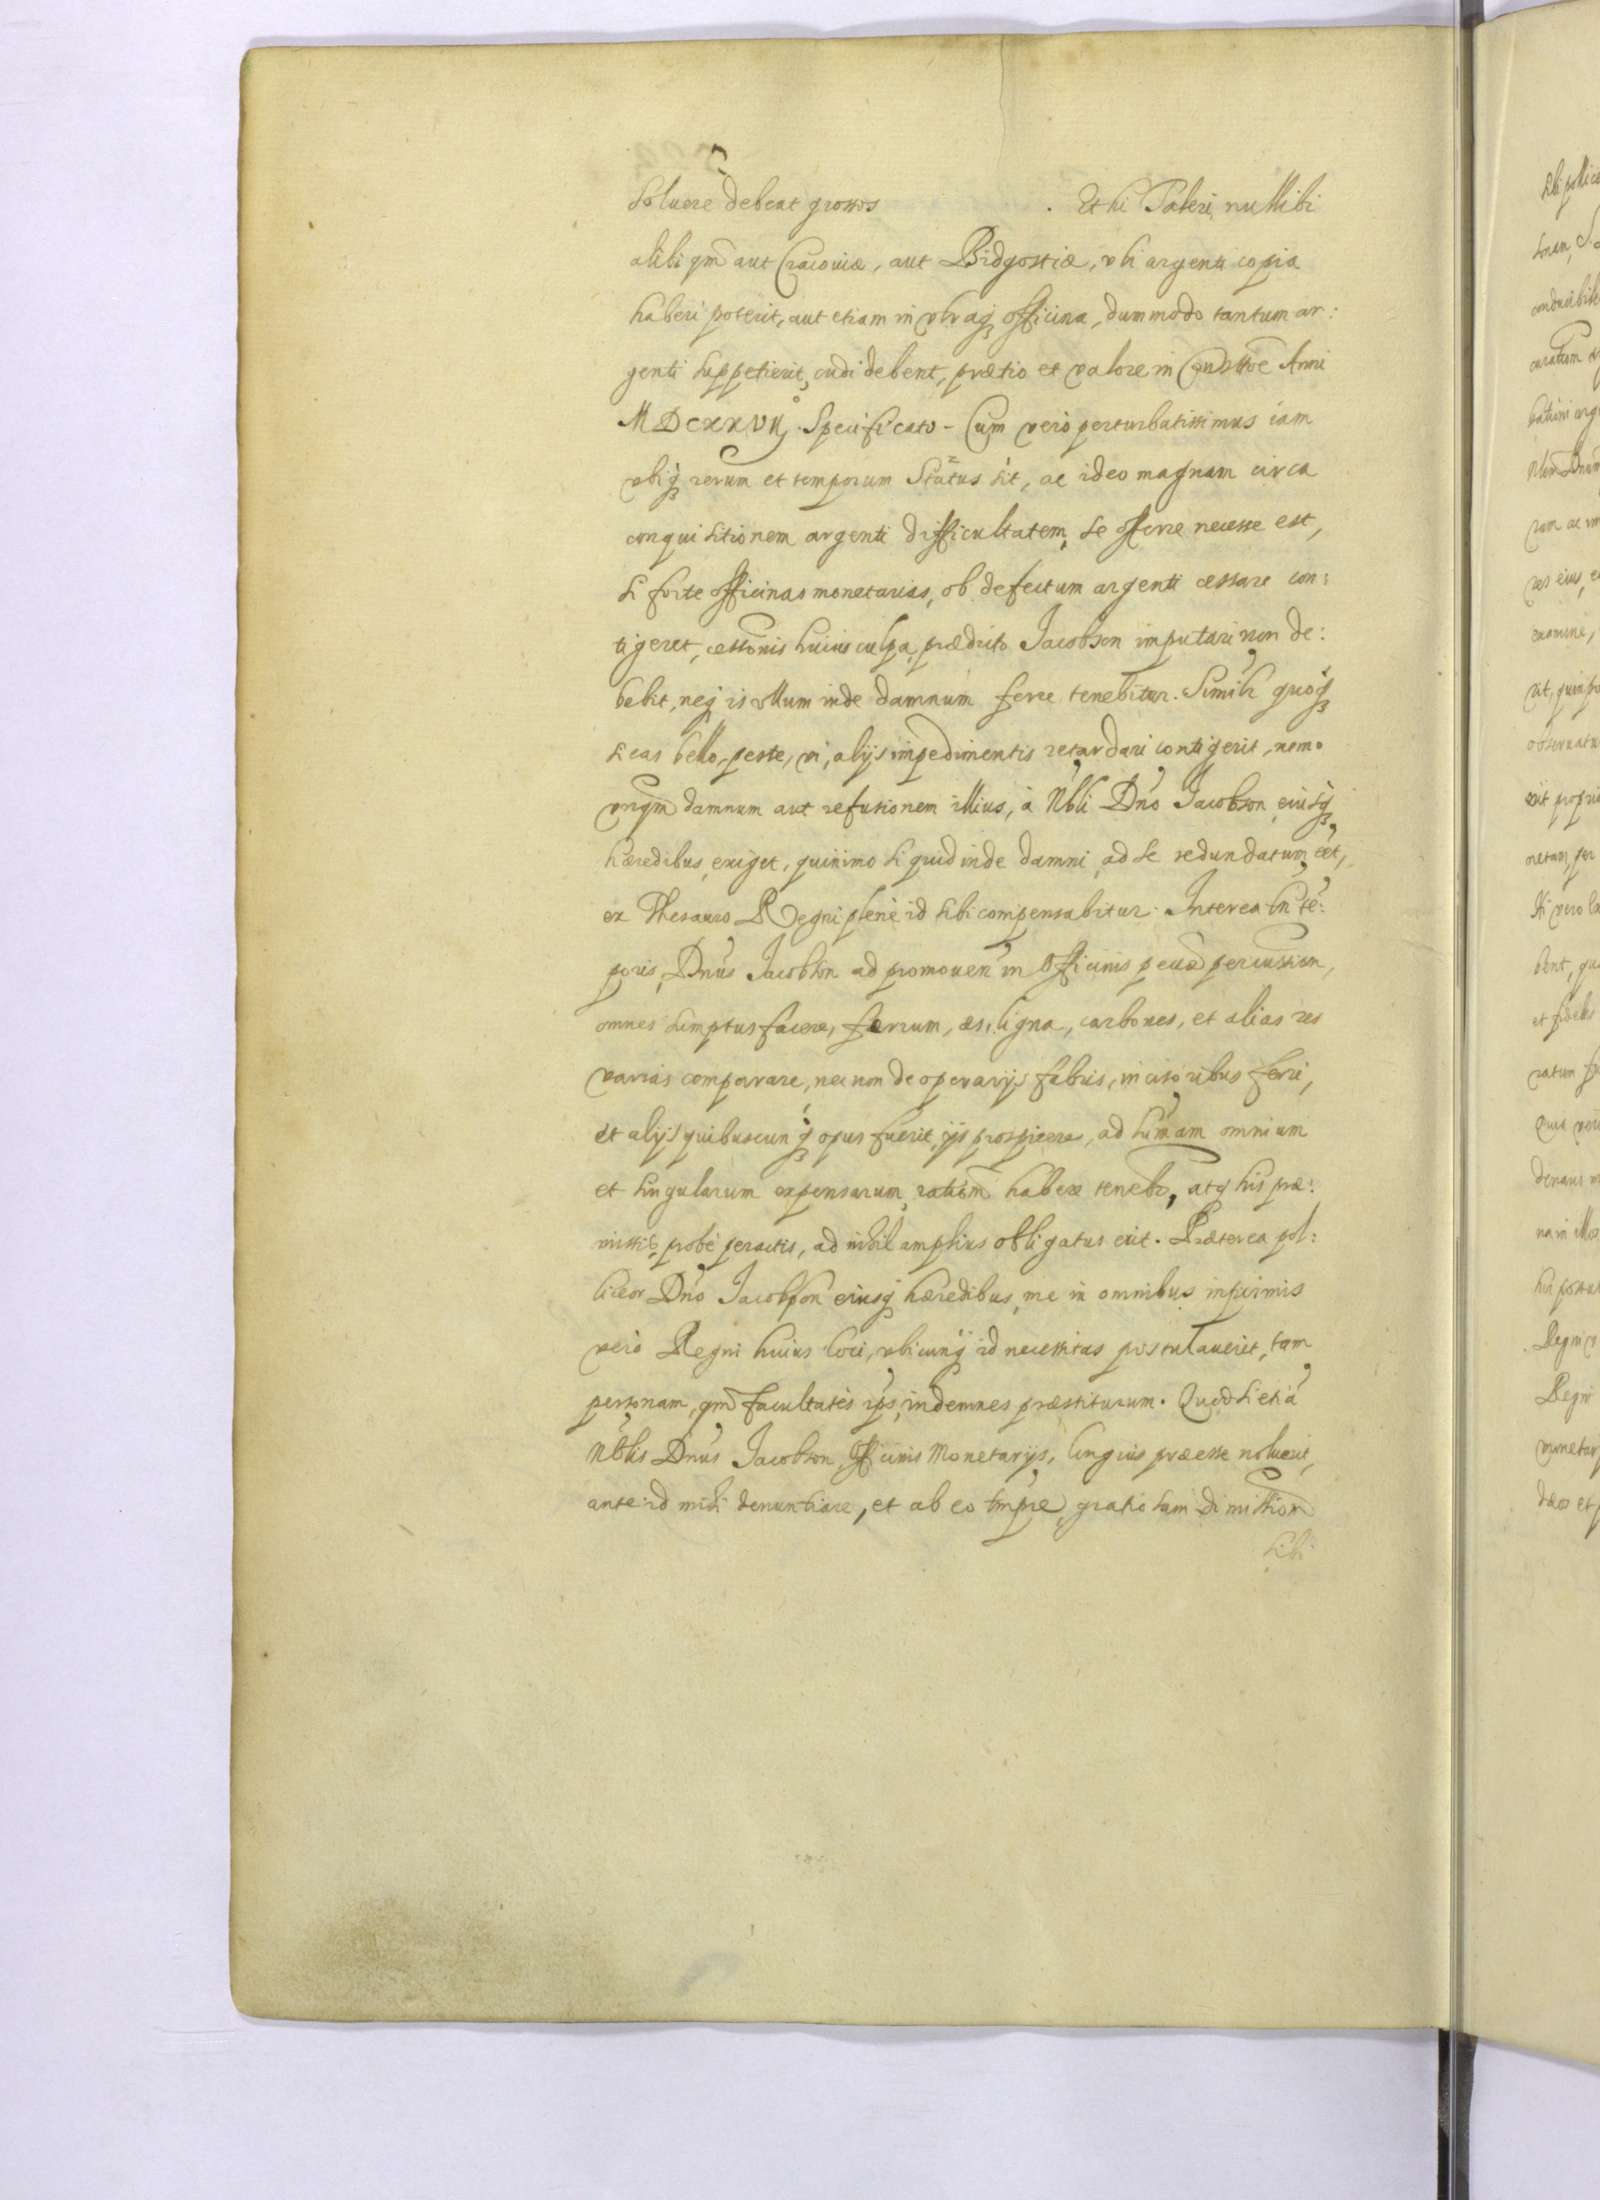 Soluere debeat grossos . Et hi Taleri nullibi
alibi qm̃ aut Cracouiæ, aut Bidgostiæ, vbi argenti copia
haberi poterit, aut etiam in vtraq; officina, dummodo tantum ar:
genti suppetierit, cudi debent, prætio et valore in Anni
MDCXXVII Specificato - Cum vero perturbatissimus iam
vbiq; rerum et temporum Status sit, ac ideo magnam circa
conquisitionem argenti difficultatem, se offerre necesse est,
si forte officinas monetarias, ob defectum argenti cessare con:
tigeret, cessõnis huius culpa, prædicto Jacobson imputari non de:
bebit, neq; is vllum inde damnum ferre tenebitur. Simili quoq;
si eas bello, peste, vi, alijs impedimentis retardari contigerit, nemo
vnqm̃ damnum aut refusionem illius, à Nbli Dño Jacobson, eiusq;
hæredibus, exiget, quinimo si quid inde damni, ad se redundatum eet,
ex Thesauro Regni plenè id sibi compensabitur. Interea tñ tẽ:
poris, Dñus Jacobson ad promouen̄ in Officinis pecuæ percussion,
omnes sumptus facere, færrum, æs, ligna, carbones, et alias res
varias comparare, nec non de operarijs fabris, incisoribus ferri,
et alijs quibuscunq; opus fuerit, ijs prospicere, ad sum̃am omnium
et singularum expensarum, ratiõm habere teneb̃r, atq; his præ:
missib; probè peractis, ad nihil amplius obligatus erit. Præterea pol:
liceor Dño Jacobson eiusq; hæredibus, me in omnibus inprimis
verò Regni huius loci, vbicunq; id necessitas postulauerit, tam
personam, qm̃ facultates ips, indemnes præstiturum. Quod si etiã
Nblis Dñus Jacobson, Officinis Monetarijs, longius præesse noluerit,
ante id mihi denuntiare, et ab eo tmpre, gratiosam dimission̄
sibi